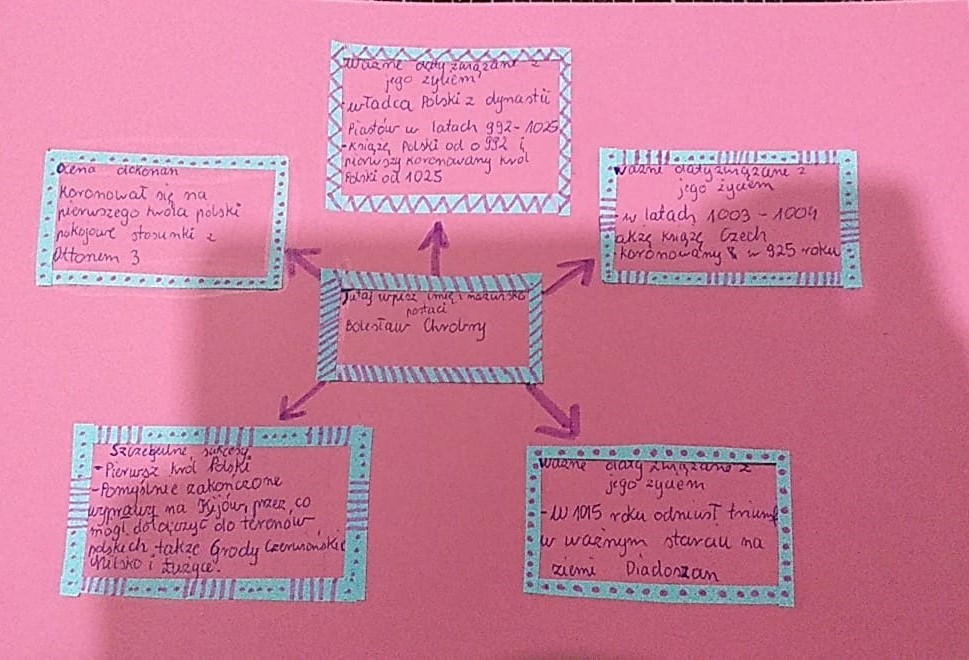 Ważne daty związane z
jego życiem
- władca Polski z dynastii
Piastów w latach 992-1025
- książę Polski od o 992 i
pierwszy koronowany król
Polski od 1025
Ocena dokonań
Koronował się na
pierwszego króla polski
pokojowe stosunki z
Ottonem 3
ważne daty związane z
jego życiem
- w latach 1003 - 1004
akże książę Czech
- koronowany w 925 roku
Tutaj wpisz imię i nazwisko
postaci
Bolesław Chrobry
Szczegulne sukcesy
- Pierwsz król Polski
- Pomyślnie zakończone
wyprawy na Kijów, przez co
mógł dołączyć do terenów
polskich także Grody Czerwońskie
Milsko i Łużyce.
ważne daty związane z
jego życiem
- W 1015 roku odniusł triumf
w ważnym starciu na
ziemi Diadoszan